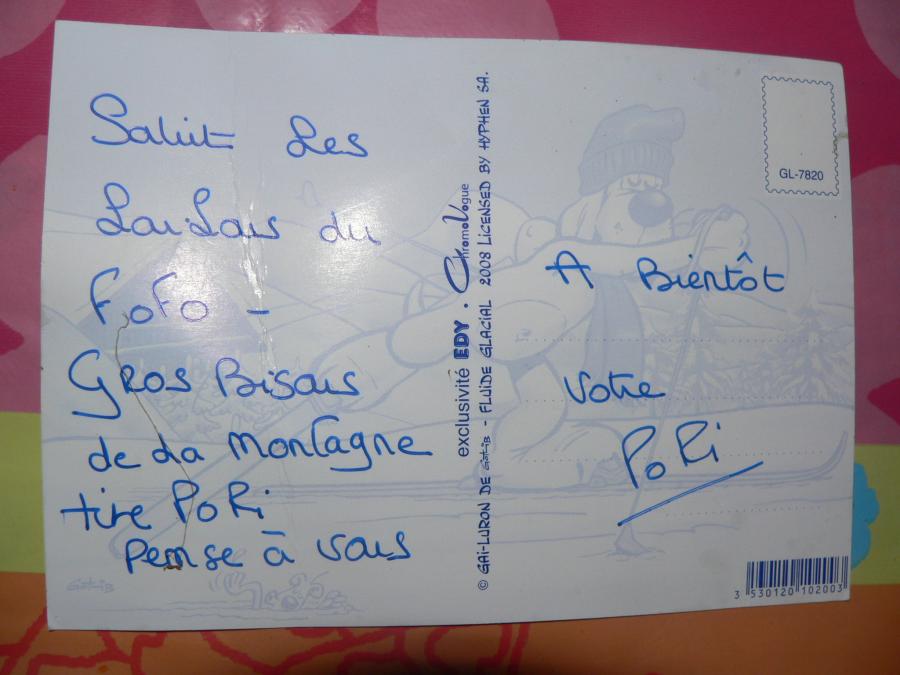 Salut Les
LouLous du
FoFo -
Gros Bisous
de La Montagne
tire PoRi
Pense à vous
exclusivité EDY . ChromoVogue
© GAI-LURON DE Gotlib - FLUIDE GLACIAL 2008 LICENSED BY HYPHEN SA.
GL-7820
A Bientôt
Votre
PoRi
Gotlib
3 530120 102003